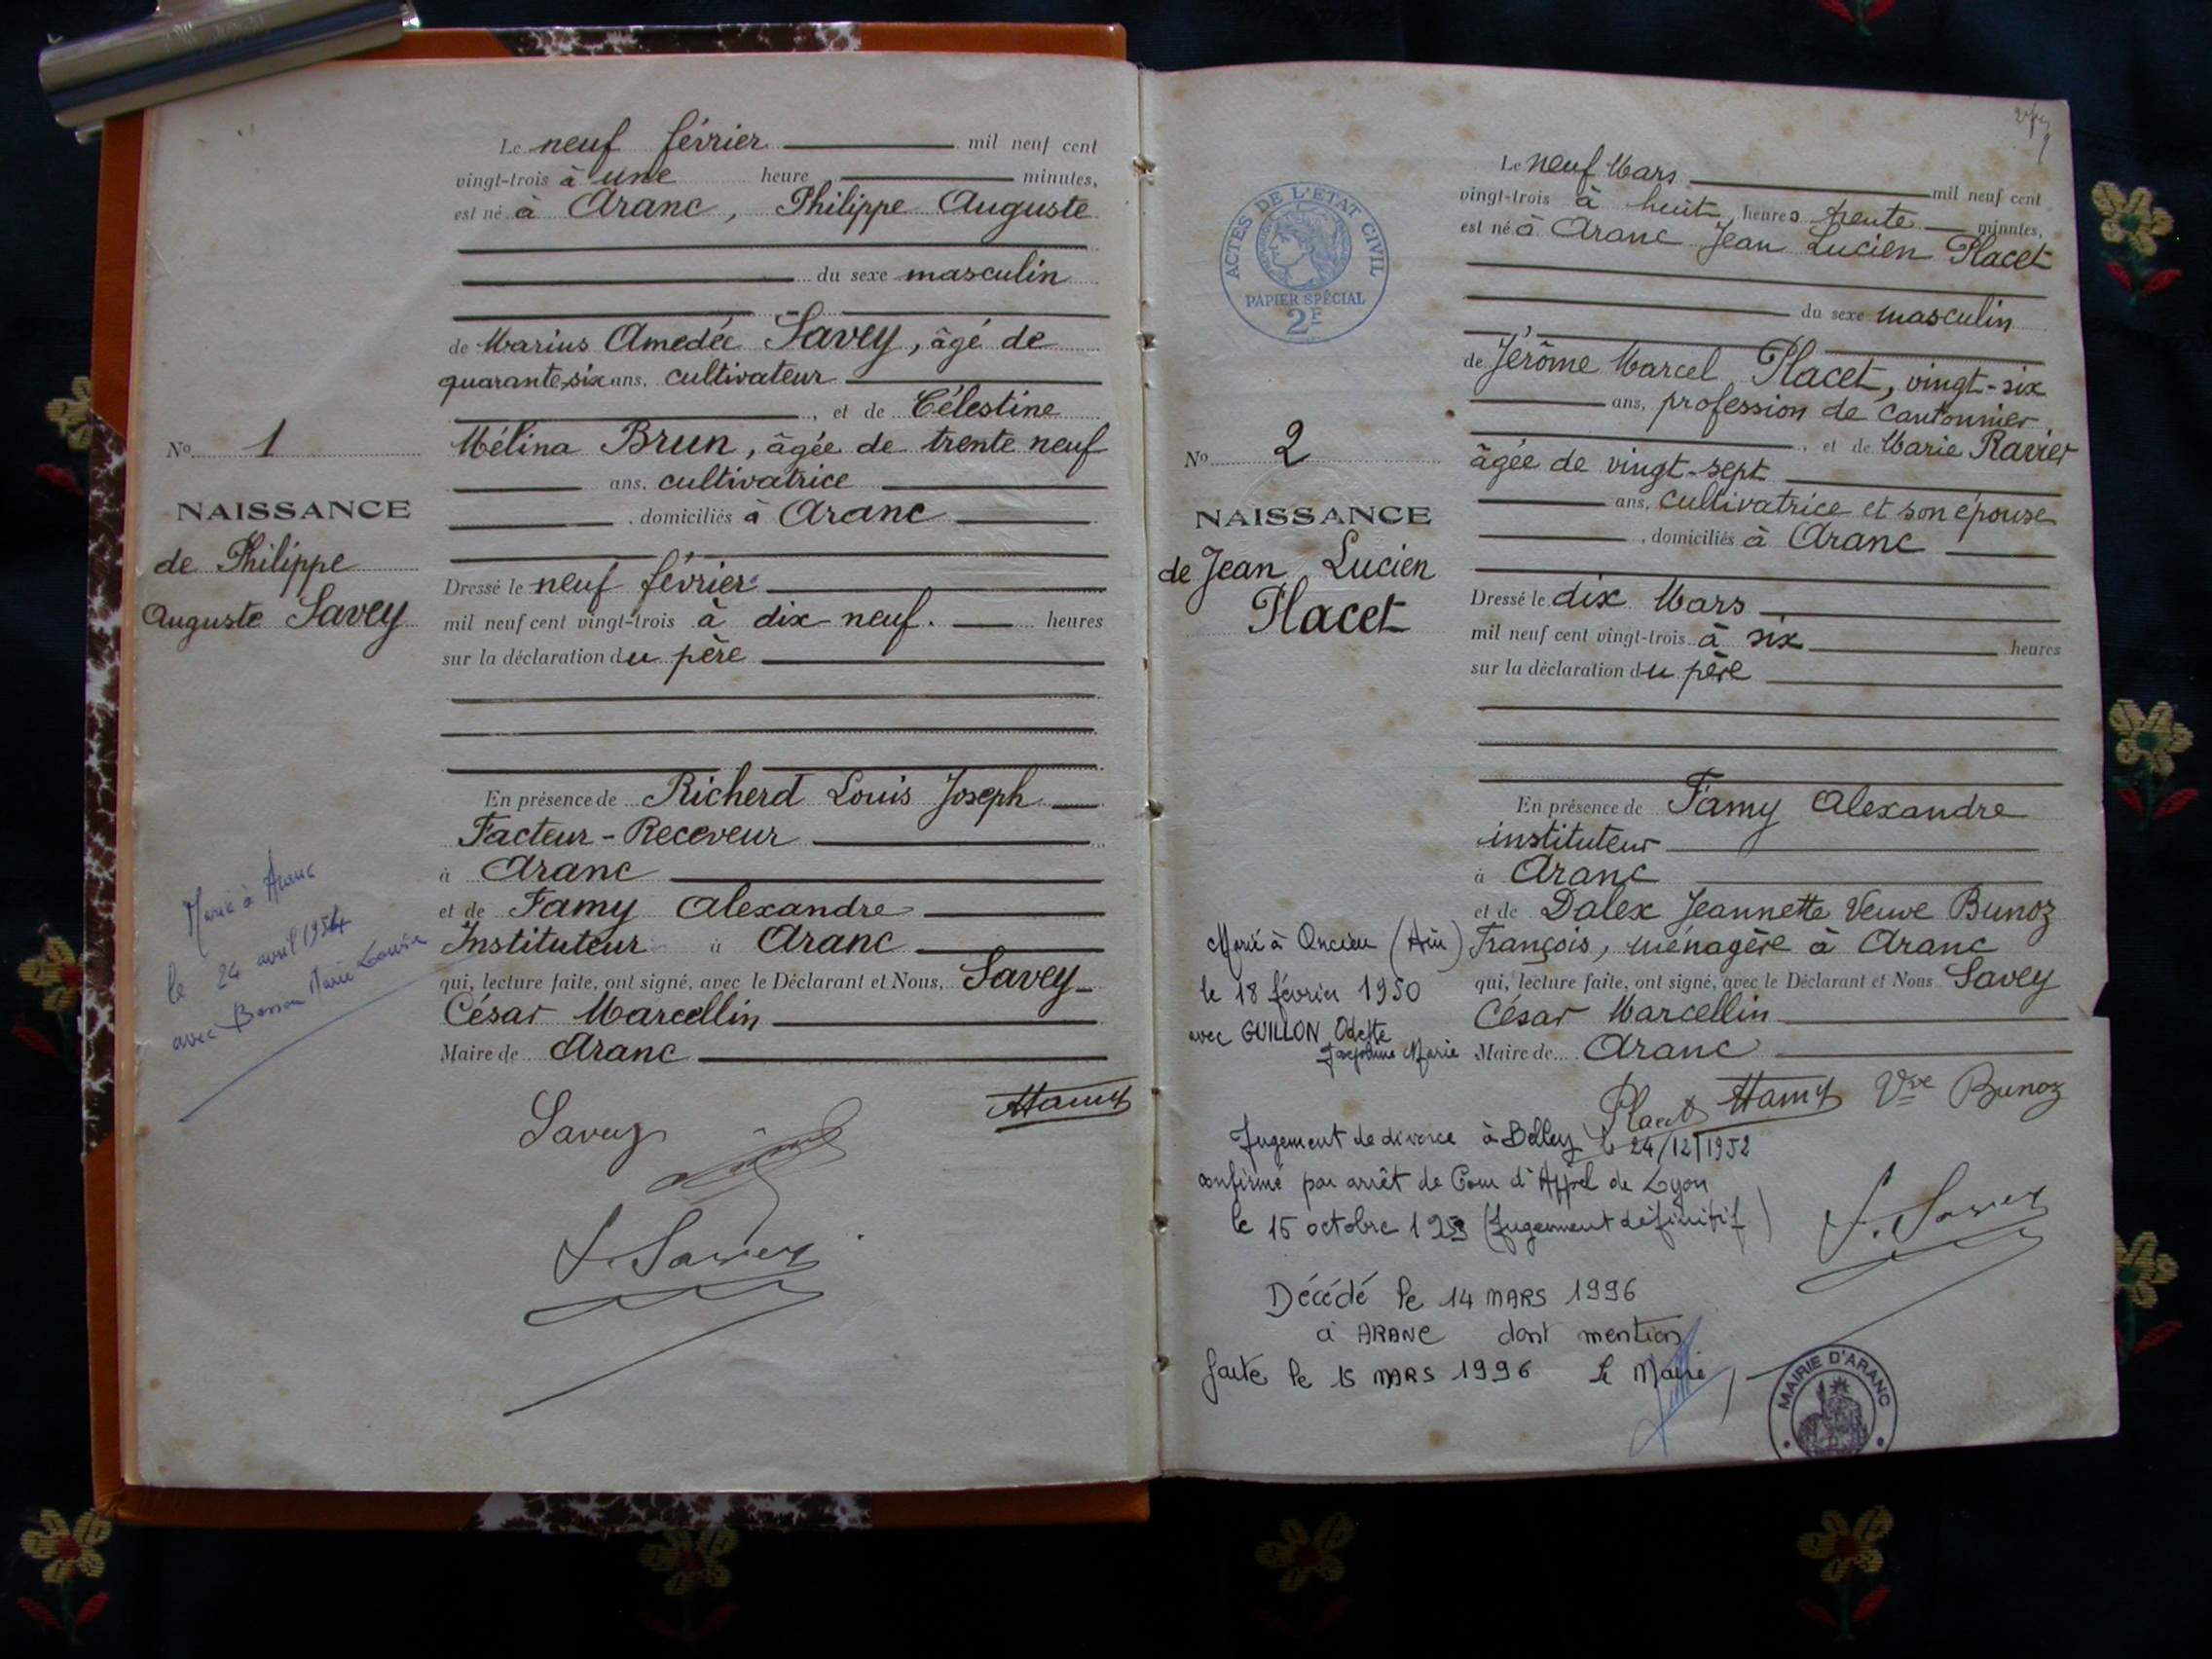 Le neuf février mil neuf cent
vingt-trois à une heure minutes,
est né à Aranc, Philippe Auguste
du sexe masculin
de Marius Amedée Savey, âgé de
quarante-six ans, cultivateur
, et de Célestine
Mélina Brun, âgée de trente neuf
ans, cultivatrice
, domiciliés à Aranc
Dressé le neuf février
mil neuf cent vingt-trois à dix neuf. heures
sur la déclaration du père
En présence de Richerd Louis Joseph
Facteur-Receveur
à Aranc
et de Famy Alexandre
Instituteur à Aranc
qui, lecture faite, ont signé, avec le Déclarant et Nous, Savey
César Marcellin
Maire de Aranc
Savey
AFamy
J. Savey
No 1
NAISSANCE
de Philippe
Auguste Savey
Marié à Aranc
le 24 avril 1954
avec Marie Louise
ACTES DE L'ETAT CIVIL
PAPIER SPÉCIAL
2F
Le neuf Mars mil neuf cent
vingt-trois à huit heures trente minutes,
est né à Aranc Jean Lucien Placet
du sexe masculin
de Jérôme Marcel Placet, vingt-six
ans, profession de cantonnier
, et de Marie Ravier
âgée de vingt-sept
ans, cultivatrice et son épouse
, domiciliés à Aranc
Dressé le dix Mars
mil neuf cent vingt-trois à six heures
sur la déclaration du père
En présence de Famy Alexandre
instituteur
à Aranc
et de Dalex Jeannette Veuve Bunoz
François, ménagère à Aranc
qui, lecture faite, ont signé, avec le Déclarant et Nous Savey
César Marcellin
Maire de Aranc
Placet AFamy Vve Bunoz
J. Savey
No 2
NAISSANCE
de Jean Lucien
Placet
Marié à Oncieu (Ain)
le 18 février 1950
avec GUILLON Odette
Joséphine Marie
Jugement de divorce à Belley le 24/12/1952
confirmé par arrêt de Cour d'Appel de Lyon
le 15 octobre 1953 (Jugement définitif)
Décédé le 14 MARS 1996
à ARANC dont mention
faite le 15 MARS 1996 Le Maire
MAIRIE D'ARANC